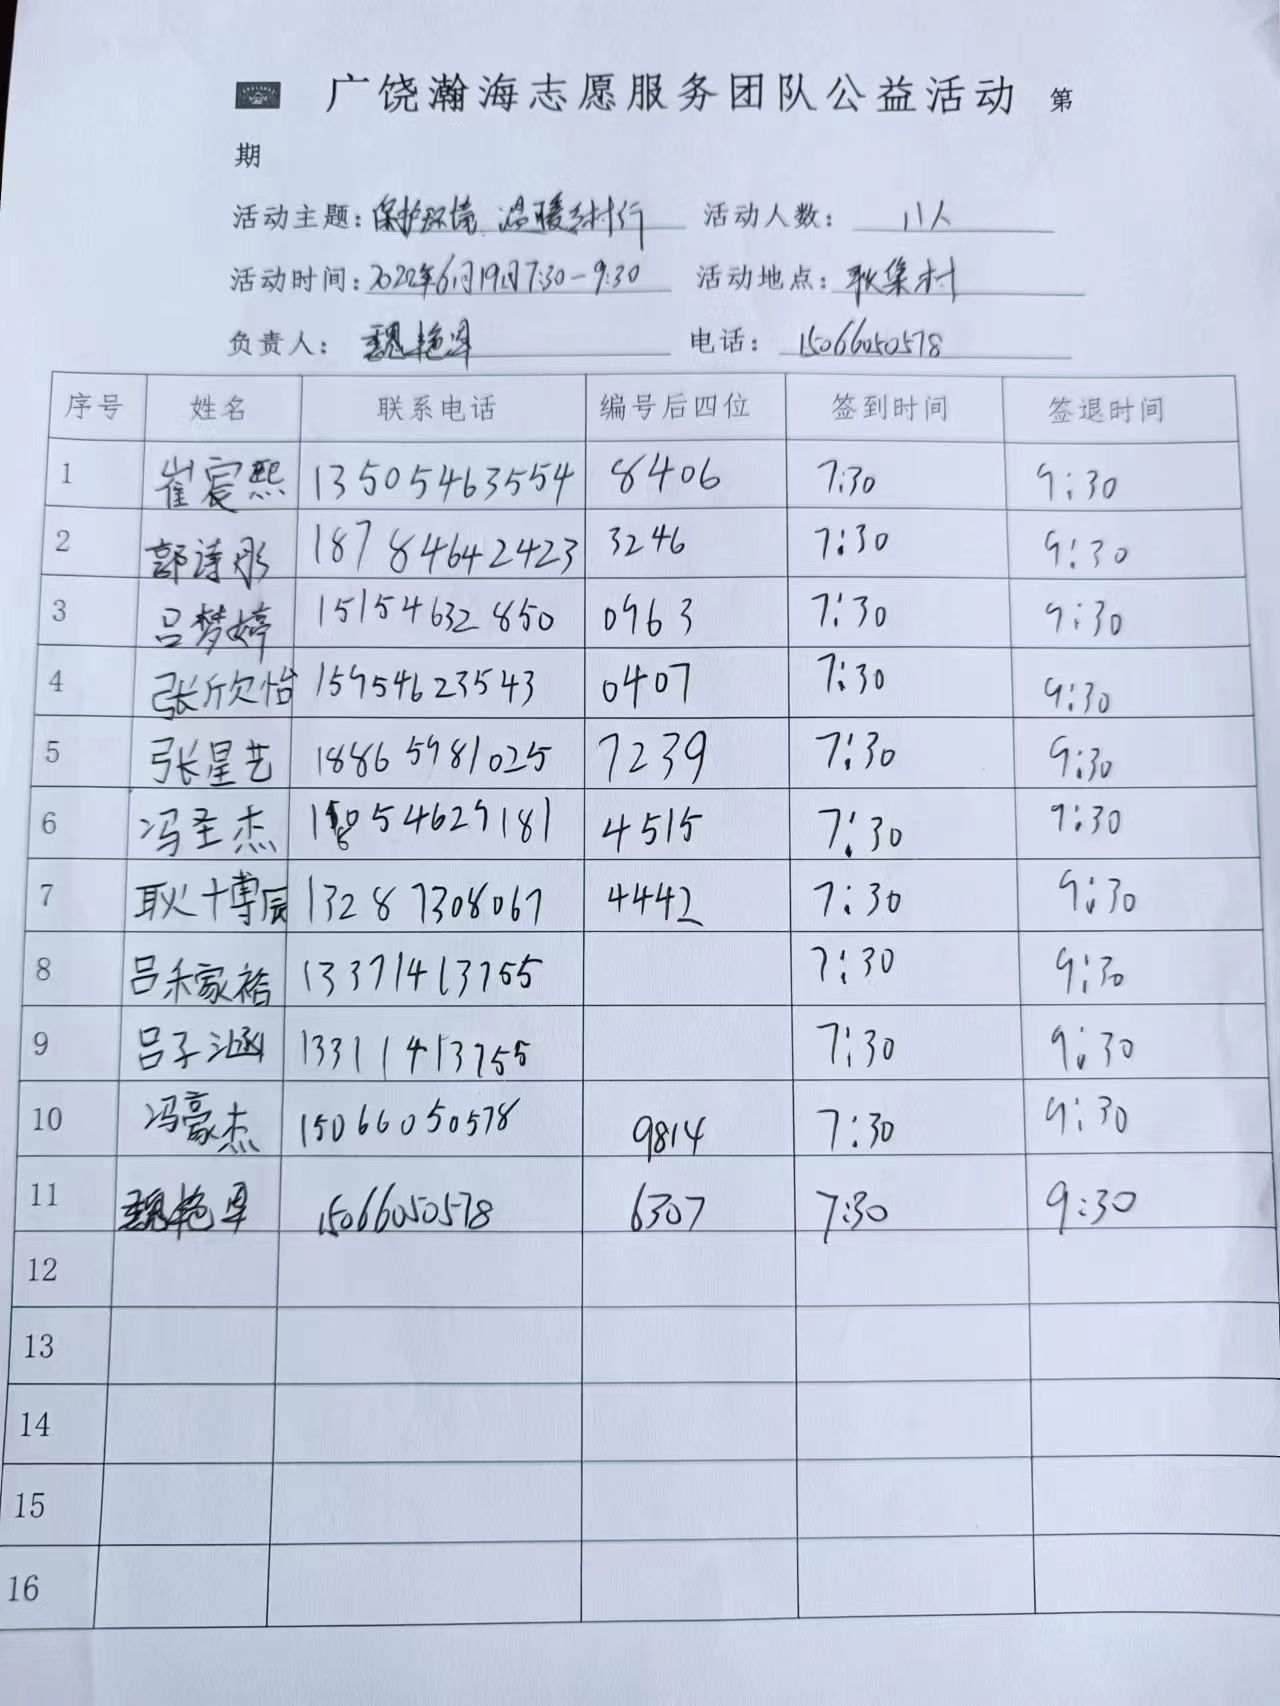 广饶瀚海志愿服务团队公益活动 第
期
活动主题: 保护环境 温暖乡村行 活动人数: 11人
活动时间: 2022年6月19日7:30-9:30 活动地点: 耿集村
负责人: 魏艳翠 电话: 15066050578
序号 姓名 联系电话 编号后四位 签到时间 签退时间
1 崔宸熙 13505463554 8406 7:30 9:30
2 郭诗彤 18784642423 3246 7:30 9:30
3 吕梦婷 15154632850 0963 7:30 9:30
4 张欣怡 15954623543 0407 7:30 9:30
5 张星艺 18865981025 7239 7:30 9:30
6 冯圣杰 18054629181 4515 7:30 9:30
7 耿博辰 13287308067 4442 7:30 9:30
8 吕禾家裕 13371413755 7:30 9:30
9 吕子涵 13311413755 7:30 9:30
10 冯豪杰 15066050578 9814 7:30 9:30
11 魏艳 15066050578 6307 7:30 9:30
12
13
14
15
16